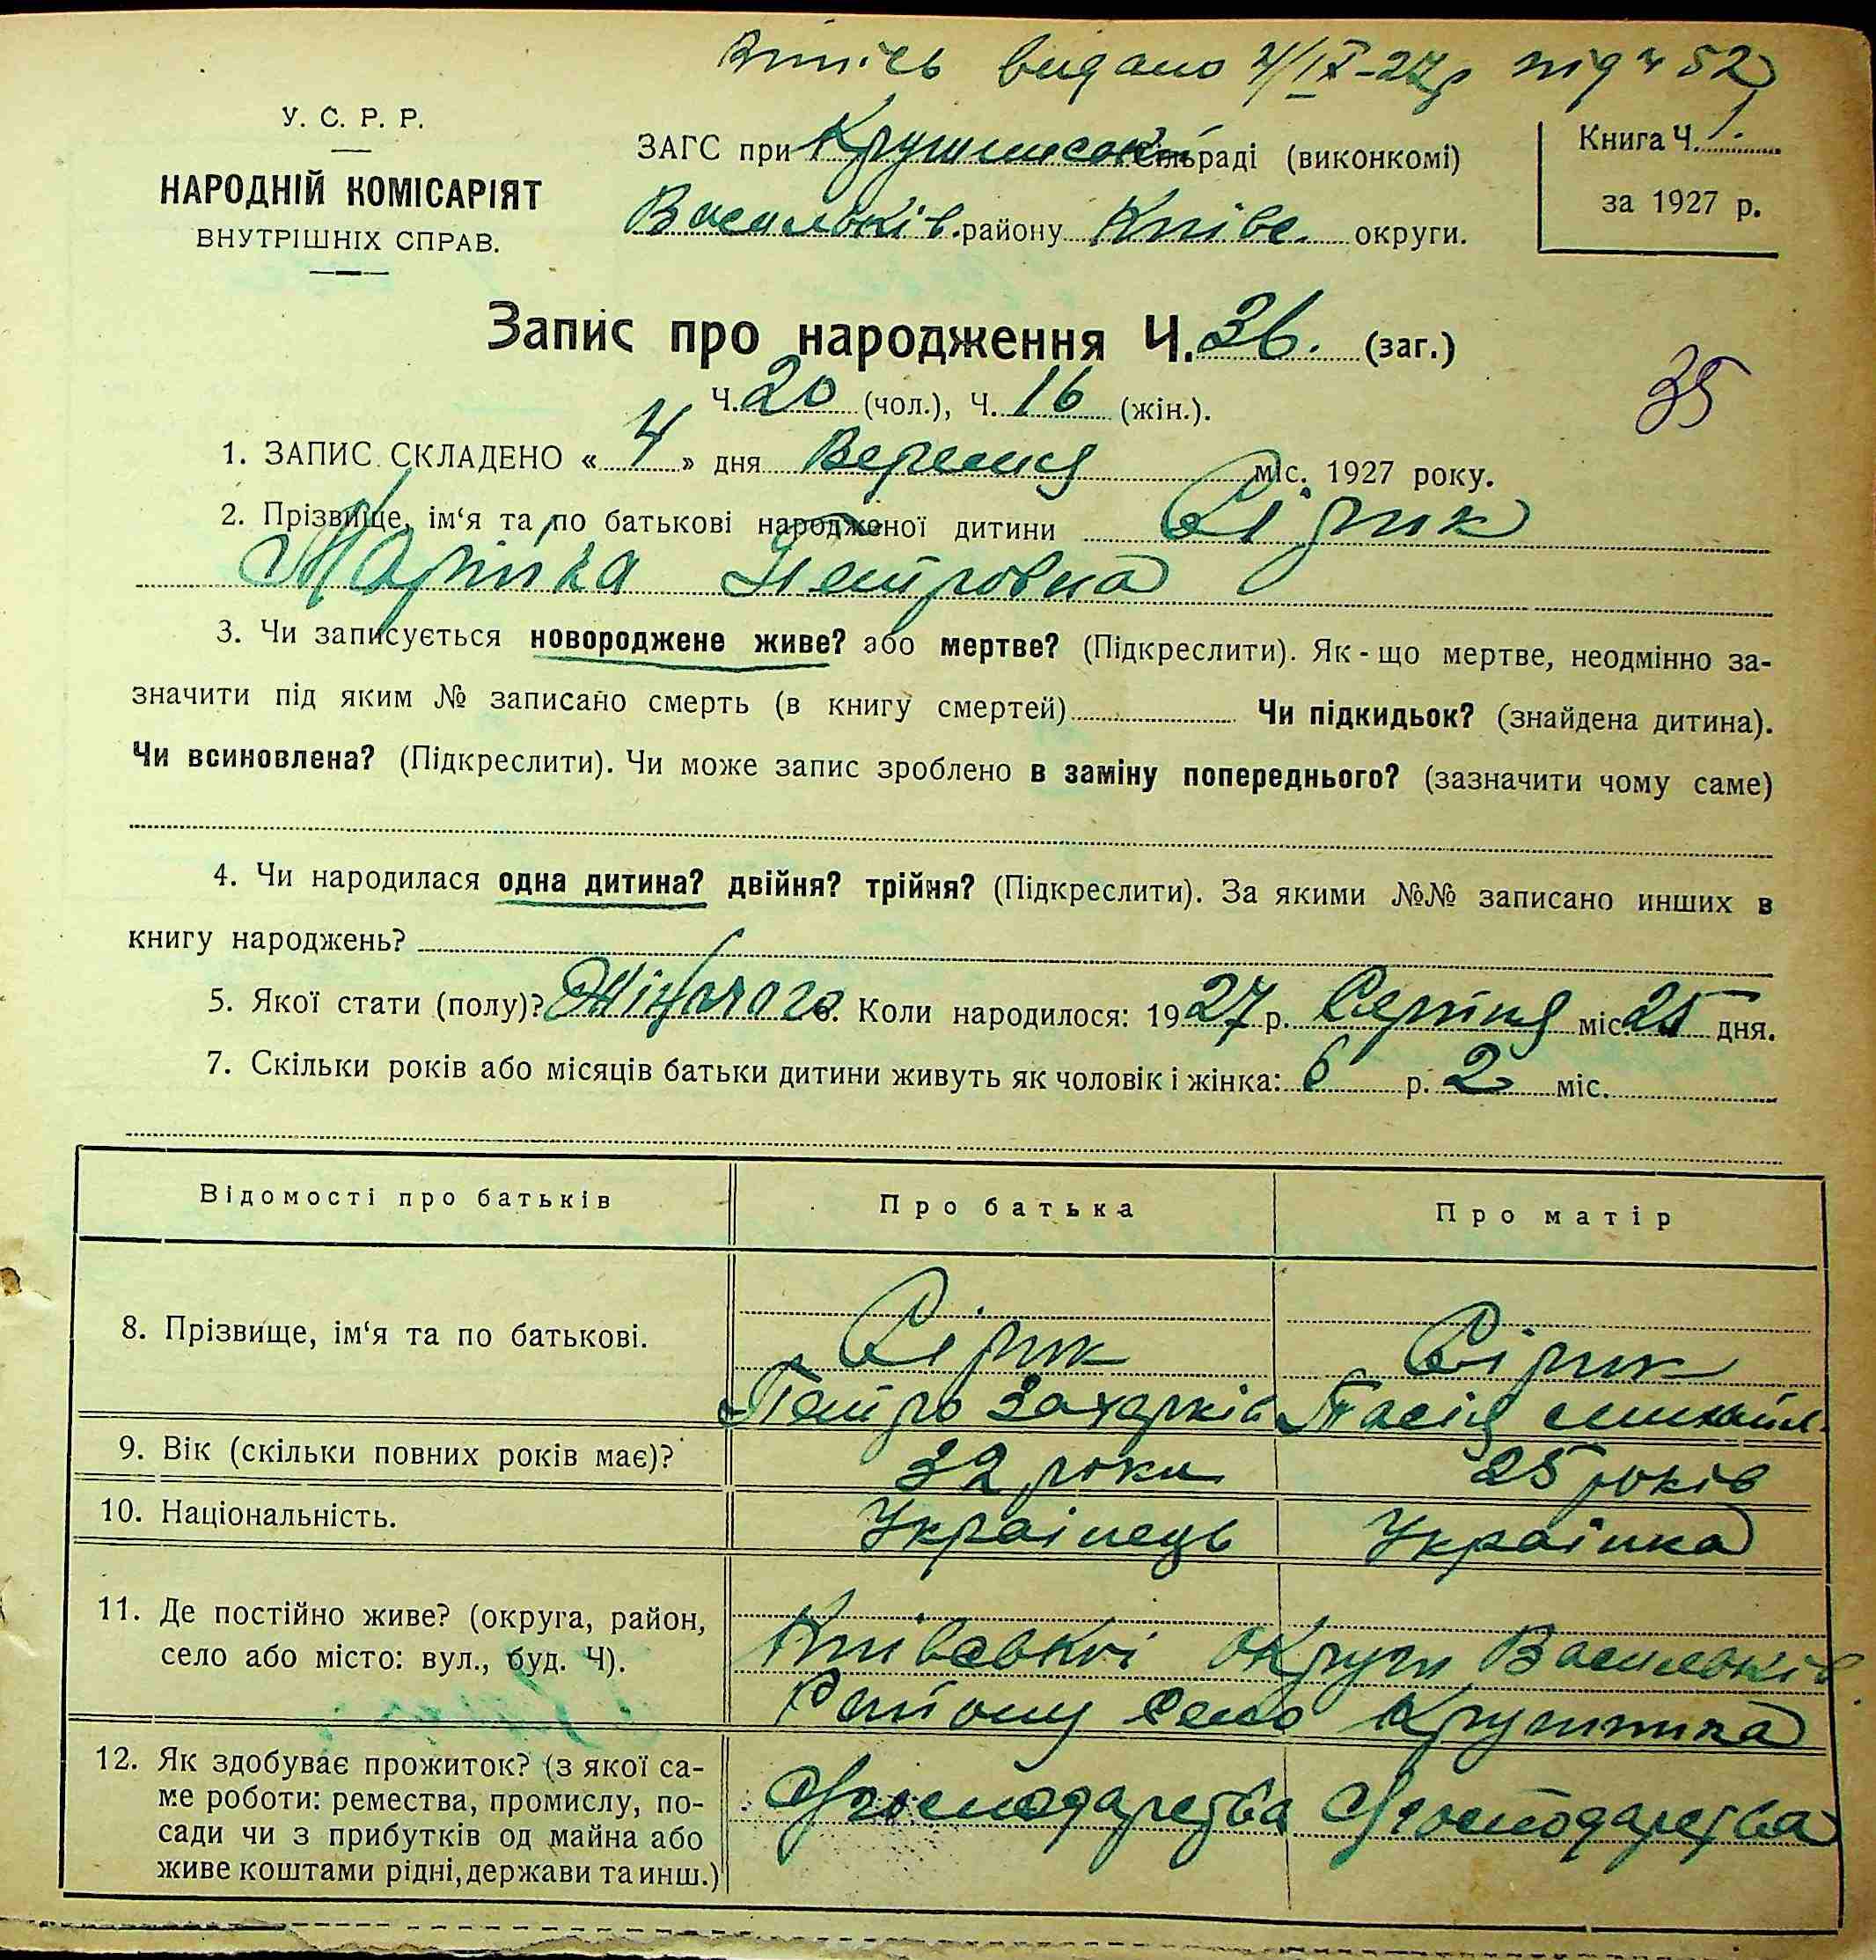 видано 4/IX-27р під № 52
У. С. Р. Р.
НАРОДНІЙ КОМІСАРІЯТ
ВНУТРІШНІХ СПРАВ.
ЗАГС при Крушинськ. Сільраді (виконкомі)
Васильків. району Київс. округи.
Книга Ч. 1.
за 1927 р.
Запис про народження Ч. 36. (заг.)
Ч. 20 (чол.), Ч. 16 (жін.).
35
1. ЗАПИС СКЛАДЕНО «4» дня Вересня міс. 1927 року.
2. Прізвище, ім‘я та по батькові народженої дитини Сірик
Марійка Петровна
3. Чи записується новороджене живе? або мертве? (Підкреслити). Як - що мертве, неодмінно за-
значити під яким № записано смерть (в книгу смертей) Чи підкидьок? (знайдена дитина).
Чи всиновлена? (Підкреслити). Чи може запис зроблено в заміну попереднього? (зазначити чому саме)
4. Чи народилася одна дитина? двійня? трійня? (Підкреслити). За якими №№ записано инших в
книгу народжень?
5. Якої стати (полу)? Жіночого 6. Коли народилося: 1927 р. Серпня міс. 25 дня.
7. Скільки років або місяців батьки дитини живуть як чоловік і жінка: 6 р. 2 міс.
Відомості про батьків Про батька Про матір
8. Прізвище, ім‘я та по батькові. Сірик Сірик
Петро Захарків Тасія Михайл.
9. Вік (скільки повних років має)? 32 роки 25 років
10. Національність. Украінець Украінка
11. Де постійно живе? (округа, район,
село або місто: вул., буд. Ч).
Київськоі округи Васильків.
Району село Крушинка
12. Як здобуває прожиток? (з якої са-
ме роботи: ремества, промислу, по-
сади чи з прибутків од майна або
живе коштами рідні, держави та инш.)
Господарства Господарства